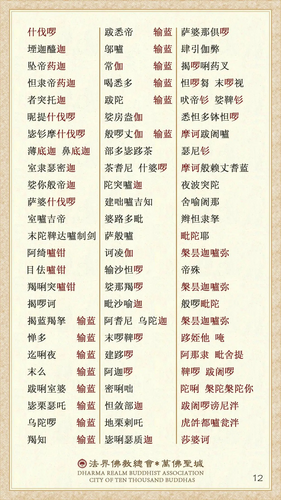 什伐啰
堙迦醯迦
坠帝药迦
怛隶帝药迦
者突托迦
昵提什伐啰
毖钐摩什伐啰
薄底迦 鼻底迦
室隶瑟密迦
娑你般帝迦
萨婆什伐啰
室嚧吉帝
末陀鞞达嚧制剑
阿绮嚧钳
目佉嚧钳
羯唎突嚧钳
揭啰诃
揭蓝羯拏 输蓝
惮多 输蓝
迄唎夜 输蓝
末么 输蓝
跋唎室婆 输蓝
毖栗瑟吒 输蓝
乌陀啰 输蓝
羯知 输蓝
跋悉帝 输蓝
邬嚧 输蓝
常伽 输蓝
喝悉多 输蓝
跋陀 输蓝
娑房盎伽 输蓝
般啰丈伽 输蓝
部多毖跢茶
茶耆尼 什婆啰
陀突嚧迦
建咄嚧吉知
婆路多毗
萨般嚧
诃凌伽
输沙怛啰
娑那羯啰
毗沙喻迦
阿耆尼 乌陀迦
末啰鞞啰
建跢啰
阿迦啰
密唎咄
怛敛部迦
地栗剌吒
毖唎瑟质迦
萨婆那俱啰
肆引伽弊
揭啰唎药叉
怛啰刍 末啰视
吠帝钐 娑鞞钐
悉怛多钵怛啰
摩诃跋阇嚧
瑟尼钐
摩诃般赖丈耆蓝
夜波突陀
舍喻阇那
辫怛隶拏
毗陀耶
槃昙迦嚧弥
帝殊
槃昙迦嚧弥
般啰毗陀
槃昙迦嚧弥
跢姪他 唵
阿那隶 毗舍提
鞞啰 跋阇啰
陀唎 槃陀槃陀你
跋阇啰谤尼泮
虎𤙖都嚧瓮泮
莎婆诃
法界佛教總會•萬佛聖城
DHARMA REALM BUDDHIST ASSOCIATION
CITY OF TEN THOUSAND BUDDHAS
12